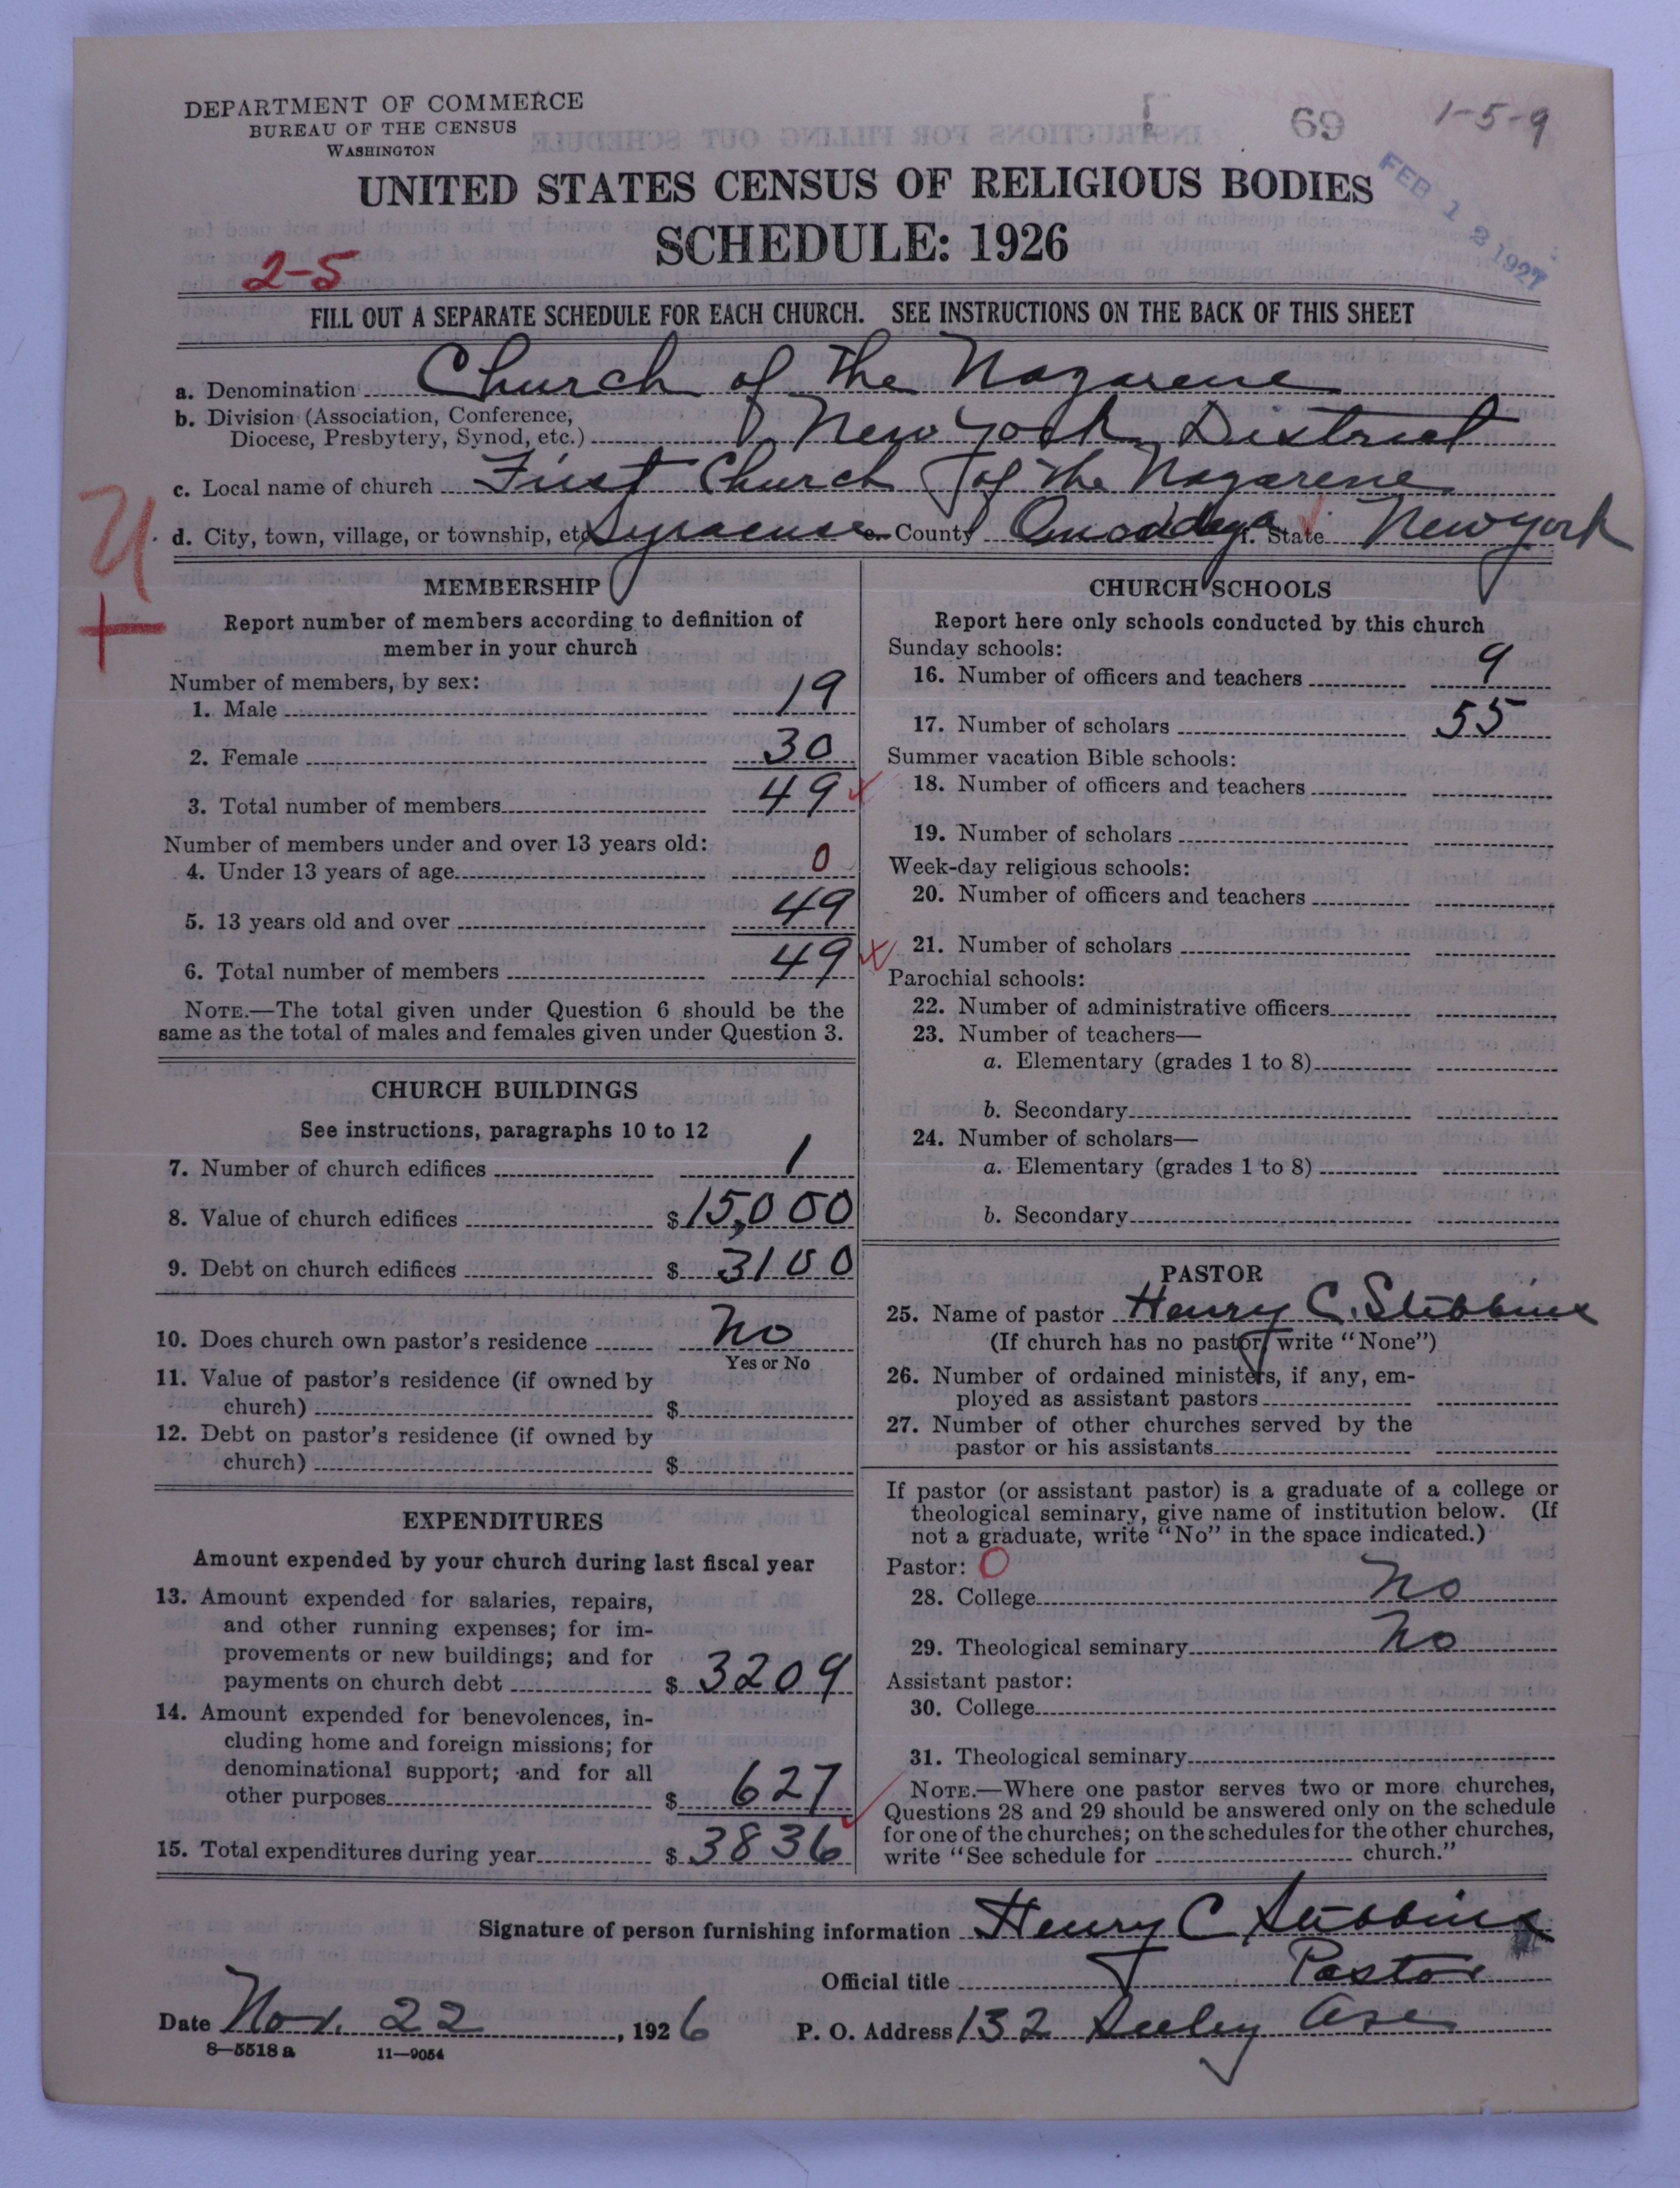 DEPARTMENT OF COMMERCE
BUREAU OF THE CENSUS
WASHINGTON
69
1-5-9
FEB 12 1927
UNITED STATES CENSUS OF RELIGIOUS BODIES
SCHEDULE: 1926
2-5
FILL OUT A SEPARATE SCHEDULE FOR EACH CHURCH. SEE INSTRUCTIONS ON THE BACK OF THIS SHEET
a. Denomination Church of the Nazarene
b. Division (Association, Conference,
Diocese, Presbytery, Synod, etc.) New York District
c. Local name of church First Church of the Nazarene
d. City, town, village, or township, etc. Syracuse e. County Onoddaga f. State New York
MEMBERSHIP
Report number of members according to definition of
member in your church
Number of members, by sex:
1. Male 19
2. Female 30
3. Total number of members 49
Number of members under and over 13 years old:
4. Under 13 years of age 0
5. 13 years old and over 49
6. Total number of members 49
NOTE.—The total given under Question 6 should be the
same as the total of males and females given under Question 3.
CHURCH BUILDINGS
See instructions, paragraphs 10 to 12
7. Number of church edifices 1
8. Value of church edifices $ 15,000
9. Debt on church edifices $ 3100
10. Does church own pastor's residence No
Yes or No
11. Value of pastor's residence (if owned by
church) $
12. Debt on pastor's residence (if owned by
church) $
EXPENDITURES
Amount expended by your church during last fiscal year
13. Amount expended for salaries, repairs,
and other running expenses; for im-
provements or new buildings; and for
payments on church debt $ 3209
14. Amount expended for benevolences, in-
cluding home and foreign missions; for
denominational support; and for all
other purposes $ 627
15. Total expenditures during year $ 3836
CHURCH SCHOOLS
Report here only schools conducted by this church
Sunday schools:
16. Number of officers and teachers 9
17. Number of scholars 55
Summer vacation Bible schools:
18. Number of officers and teachers
19. Number of scholars
Week-day religious schools:
20. Number of officers and teachers
21. Number of scholars
Parochial schools:
22. Number of administrative officers
23. Number of teachers—
a. Elementary (grades 1 to 8)
b. Secondary
24. Number of scholars—
a. Elementary (grades 1 to 8)
b. Secondary
PASTOR
25. Name of pastor Henry C. Stebbins
(If church has no pastor, write "None")
26. Number of ordained ministers, if any, em-
ployed as assistant pastors
27. Number of other churches served by the
pastor or his assistants
If pastor (or assistant pastor) is a graduate of a college or
theological seminary, give name of institution below. (If
not a graduate, write "No" in the space indicated.)
Pastor: 0
28. College No
29. Theological seminary No
Assistant pastor:
30. College
31. Theological seminary
NOTE.—Where one pastor serves two or more churches,
Questions 28 and 29 should be answered only on the schedule
for one of the churches; on the schedules for the other churches,
write "See schedule for church."
Signature of person furnishing information Henry C Stebbins
Official title Pastor
Date Nov. 22, 1926 P. O. Address 132 Seeley Ave
8—5518a 11—9054